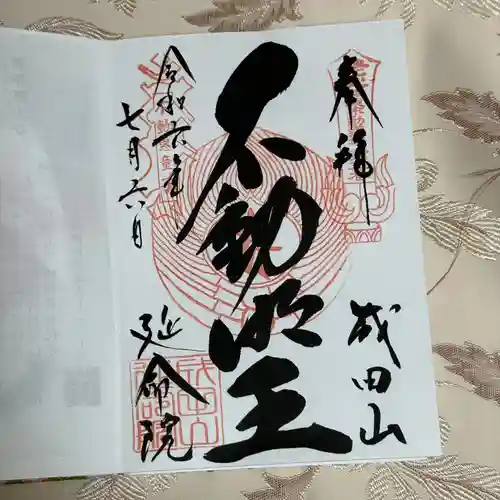 奉拝
成田山
不動明王
令和六年
七月六日
延命院